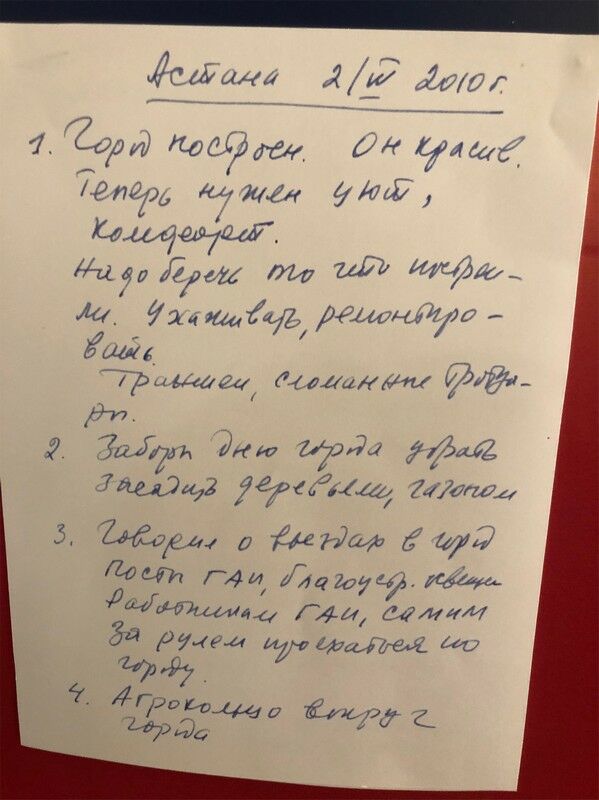 Астана 2/III 2010 г.
1. Город построен. Он красив.
Теперь нужен уют,
комфорт.
Надо беречь то что построи-
ли. Ухаживать, ремонтиро-
вать.
сломанные тротуа-
ры.
2. Заборы дню города убрать
засадить деревьями, газоном
3. Говорил о въездах в город
Посты ГАИ, благоустр.
Работникам ГАИ, самим
за рулем проехаться по
городу.
4. Агрокольцо вокруг
города